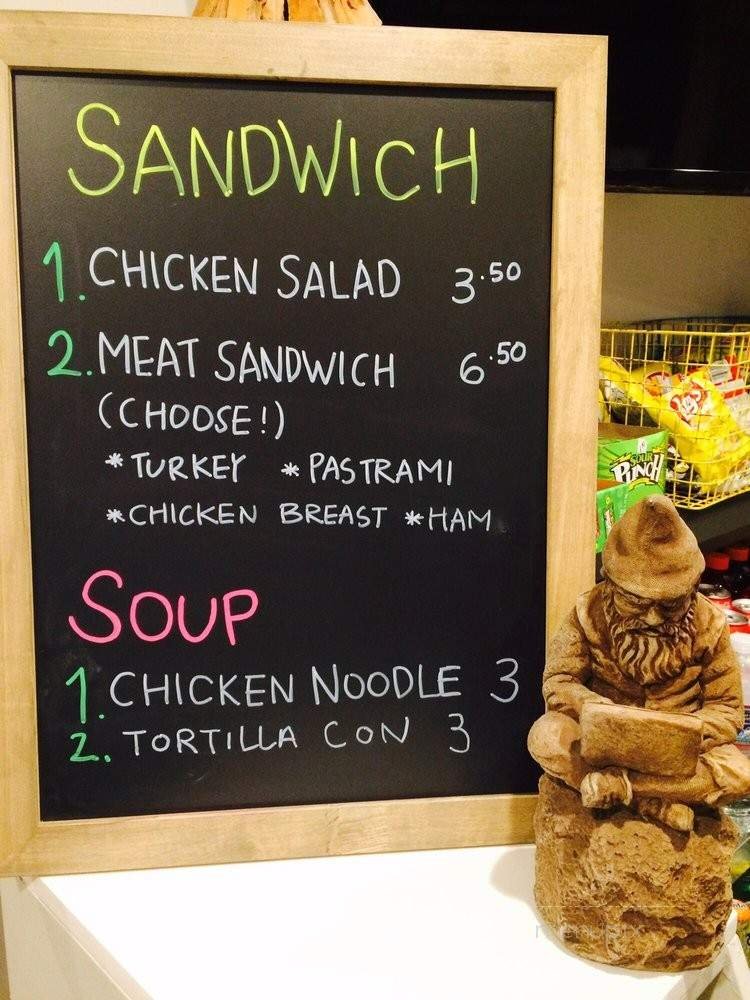 SANDWICH
1. CHICKEN SALAD 3.50
2. MEAT SANDWICH 6.50
(CHOOSE!)
* TURKEY * PASTRAMI
* CHICKEN BREAST * HAM
SOUP
1. CHICKEN NOODLE 3
2. TORTILLA CON 3
SOUR
PUNCH